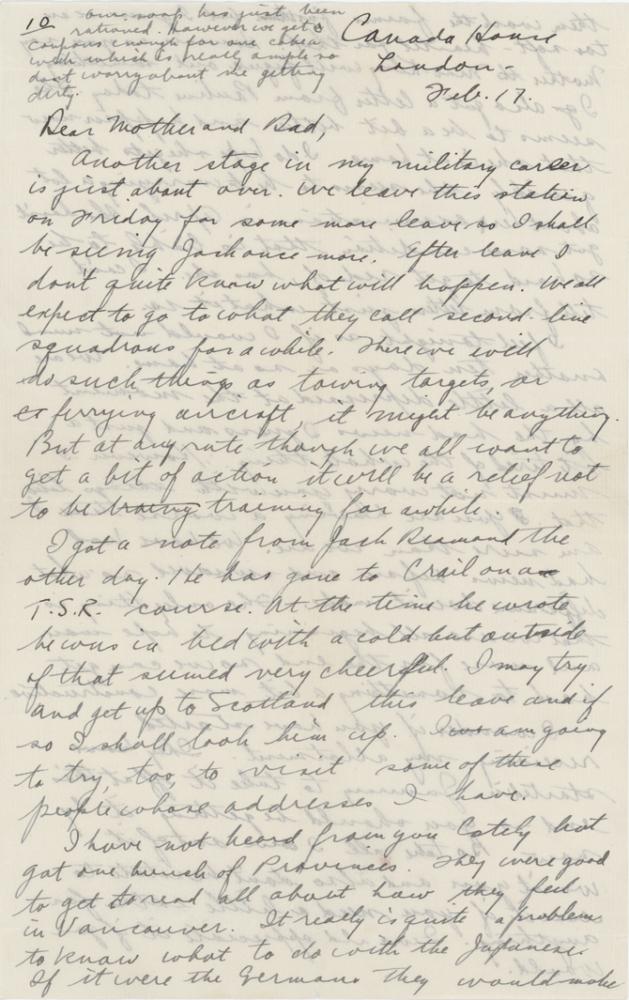 10
our soap has just been
rationed. However we get
coupons enough for one cake a
week which is really ample so
don't worry about me getting
dirty.
Canada House
London -
Feb. 17.
Dear Mother and Dad,
Another stage in my military career
is just about over. We leave this station
on Friday for some more leave so I shall
be seeing Jack once more. After leave I
don't quite know what will happen. We all
expect to go to what they call second line
squadrons for a while. There we will
do such things as towing targets, or
ferrying aircraft, it might be anything.
But at any rate though we all want to
get a bit of action it will be a relief not
to be training for awhile.
I got a note from Jack Beamond the
other day. He has gone to Crail on a
T.S.R. course. At the time he wrote
he was in bed with a cold but outside
of that seemed very cheerful. I may try
and get up to Scotland this leave and if
so I shall look him up. I am going
to try, too, to visit some of these
people whose addresses I have.
I have not heard from you lately but
got one bunch of Provinces. They were good
to get to read all about how they feel
in Vancouver. It really is quite a problem
to know what to do with the Japanese.
If it were the Germans they would make